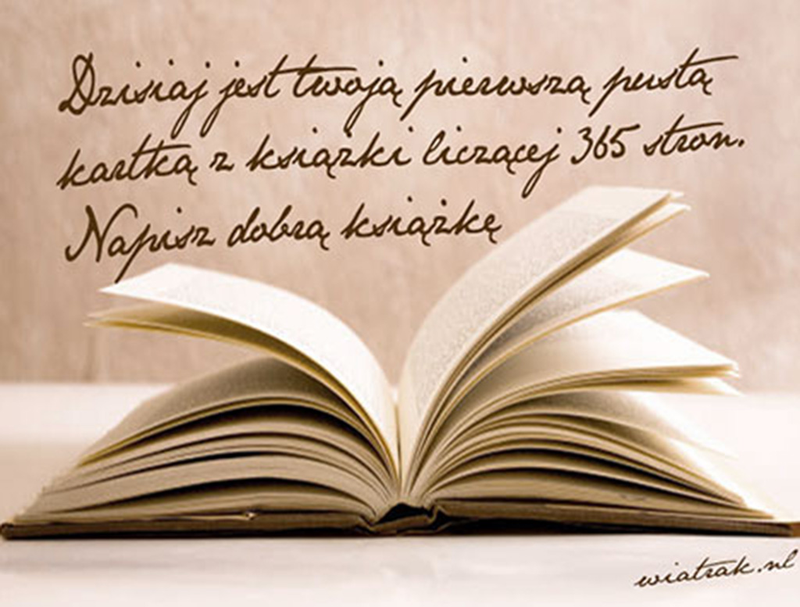 Dzisiaj jest twoją pierwszą pustą
kartką z książki liczącej 365 stron.
Napisz dobrą książkę
wiatrak.nl